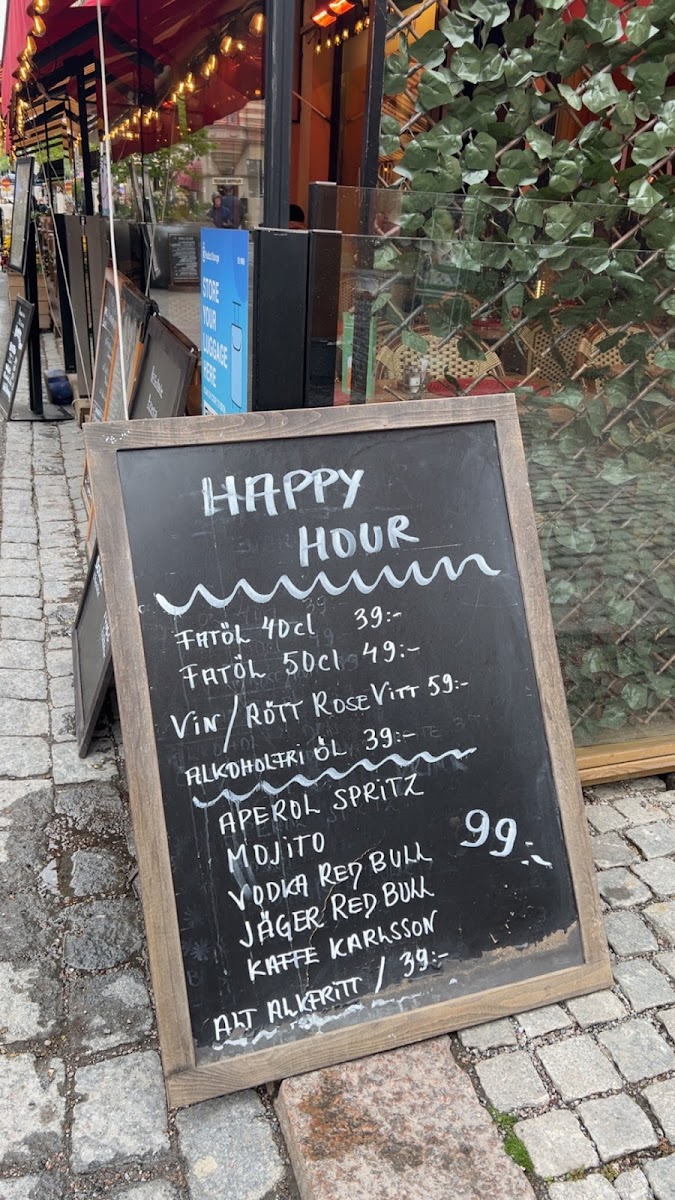 STORE
YOUR
LUGGAGE
HERE
HAPPY
HOUR
FATÖL 40cl 39:-
FATÖL 50cl 49:-
VIN/RÖTT ROSE VITT 59:-
ALKOHOLFRI ÖL 39:-
APEROL SPRITZ
MOJITO
99:-
VODKA RED BULL
JÄGER RED BULL
KAFFE KARLSSON
ALT ALKFRITT / 39:-